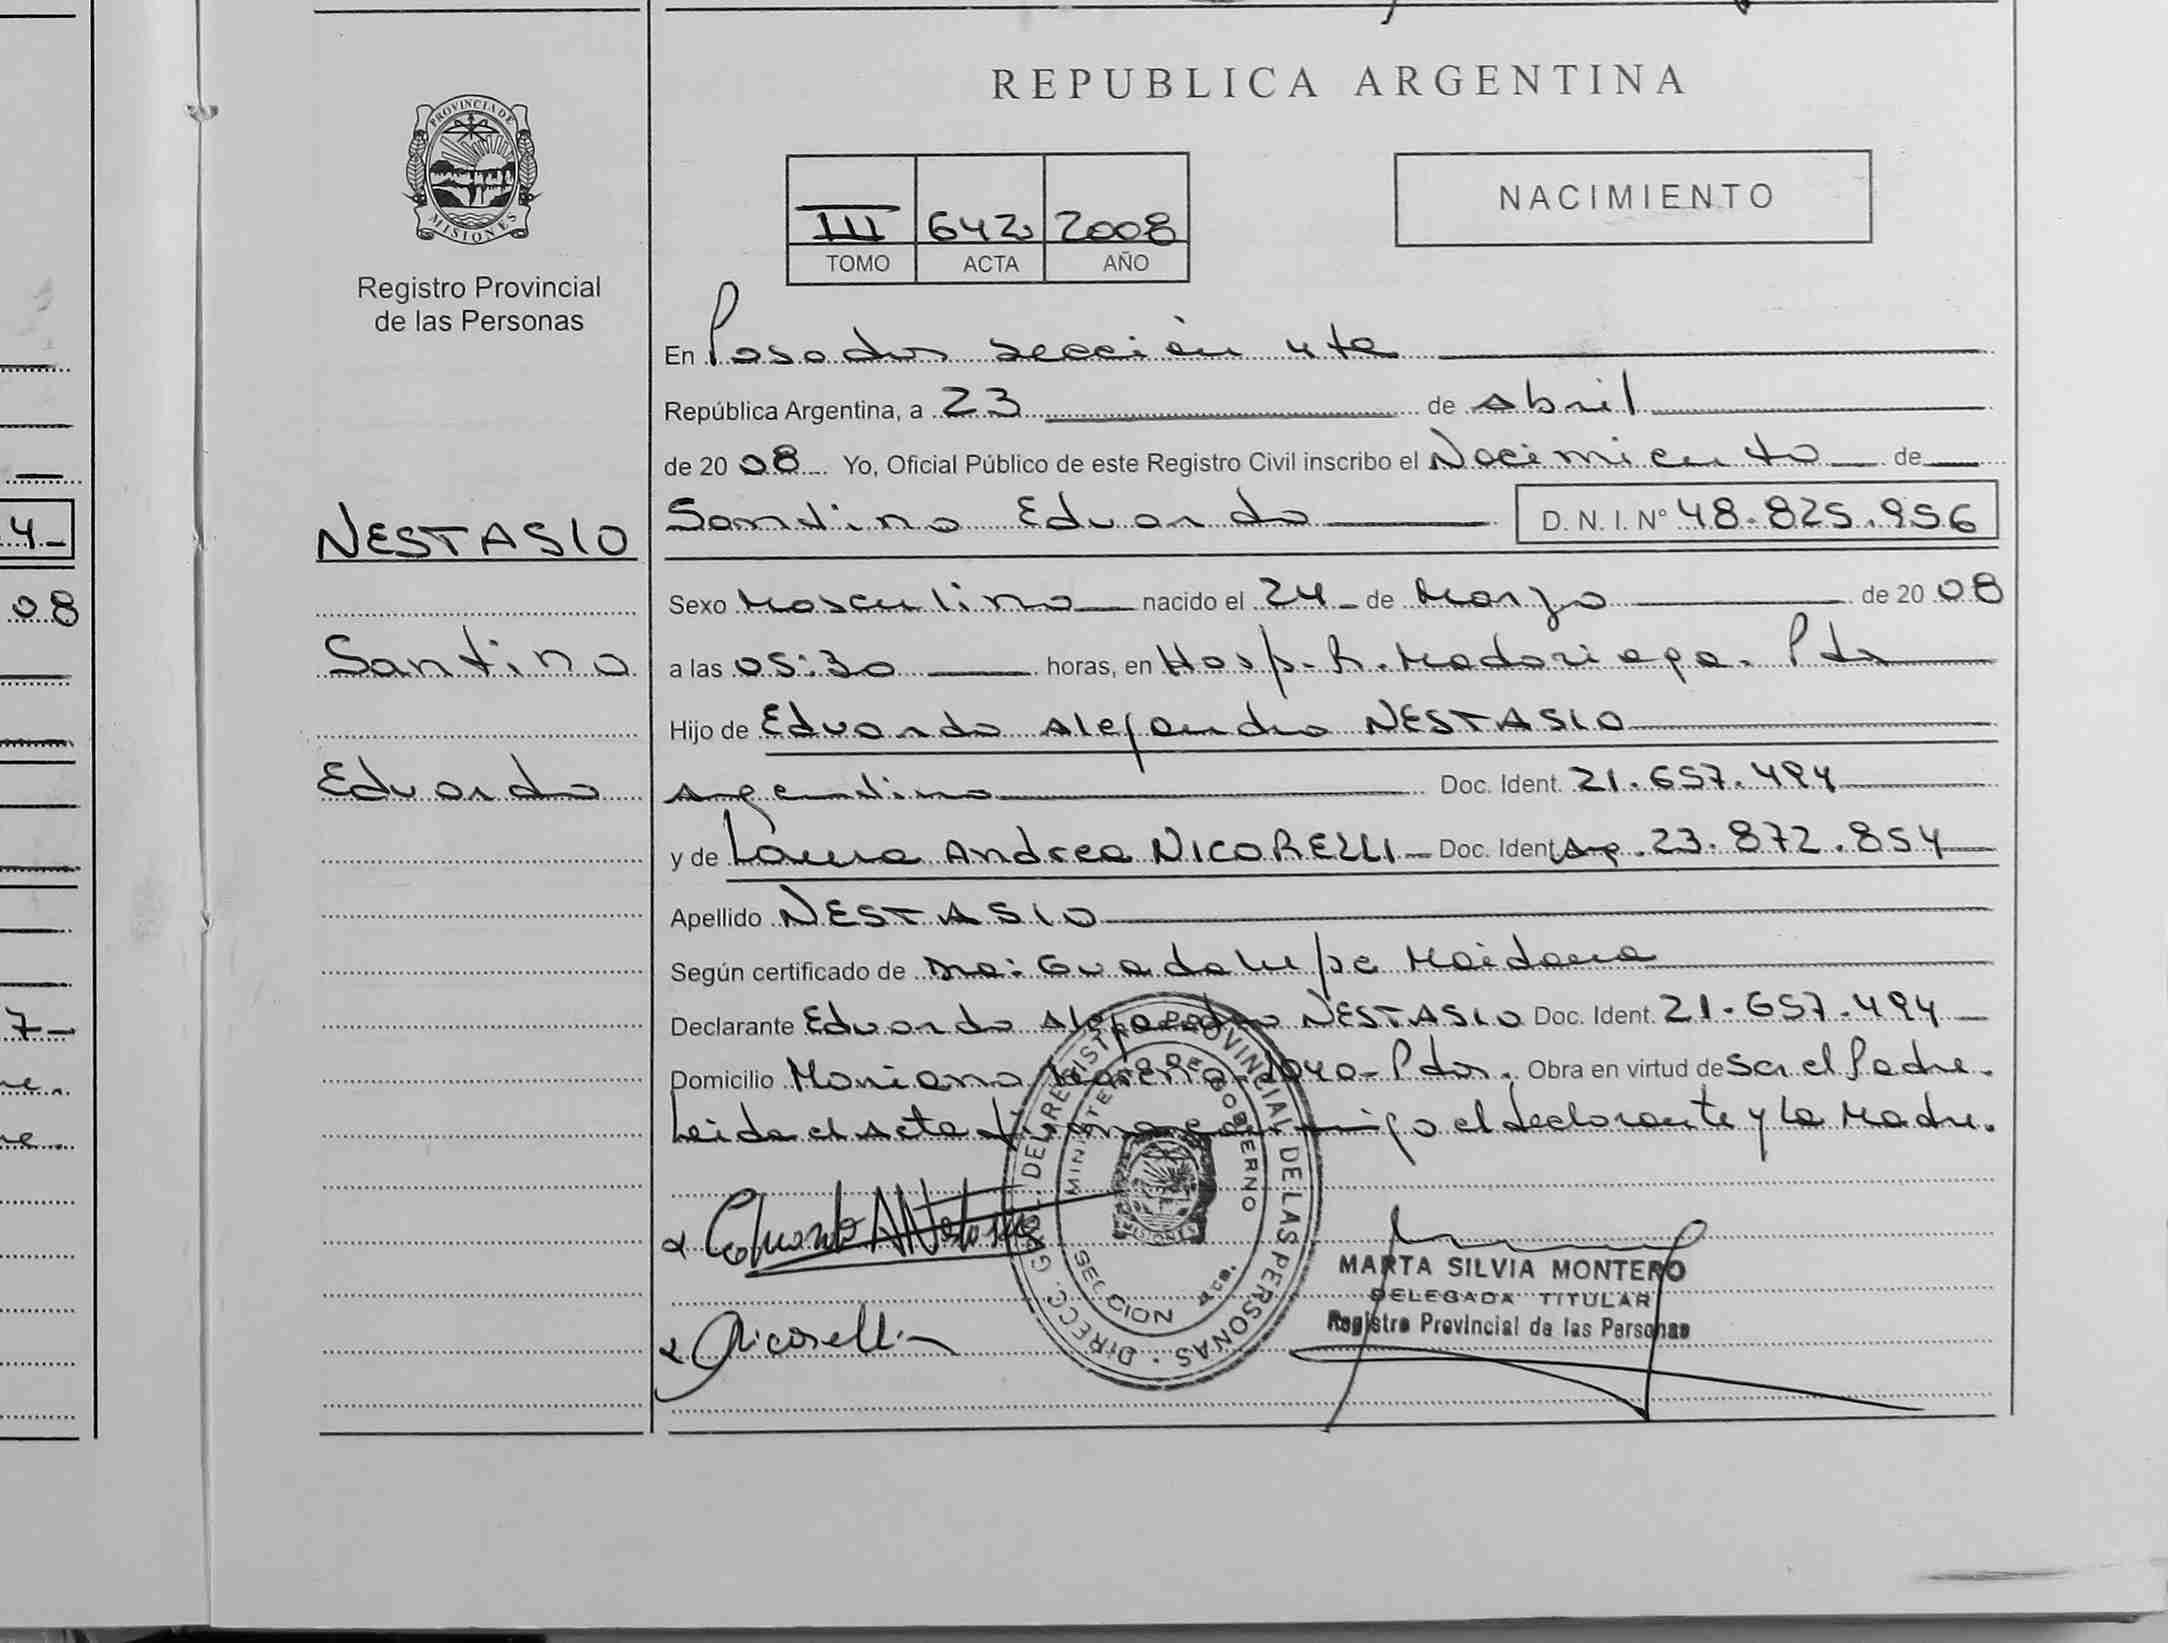 REPUBLICA ARGENTINA
PROVINCIA DE
MISIONES
Registro Provincial
de las Personas
NACIMIENTO
III 642 2008
TOMO ACTA AÑO
En Posadas sección 4ta
República Argentina, a 23 de Abril
de 2008 Yo, Oficial Público de este Registro Civil inscribo el Nacimiento de
NESTASIO
Santino Eduardo D. N. I. Nº 48.825.956
Sexo Masculino nacido el 24 de Marzo de 2008
Santino
a las 05:30 horas, en Hosp. R. Madariaga. Pdas
Hijo de Eduardo Alejandro NESTASIO
Eduardo
Argentino Doc. Ident. 21.657.494
y de Laura Andrea NICORELLI Doc. Ident. Arg. 23.872.854
Apellido NESTASIO
Según certificado de Dra: Guadalupe Maidana
Declarante Eduardo Alejandro NESTASIO Doc. Ident. 21.657.494
Domicilio Mariano Moreno Pdas. Obra en virtud de Ser el Padre.
Leida el Acta firma conmigo el declarante y la Madre.
DIRECC. GRAL. DEL REGISTRO PROVINCIAL DE LAS PERSONAS
MINISTERIO DE GOBIERNO
SECCION 4ta.
MISIONES
Nicorelli
MARTA SILVIA MONTERO
DELEGADA TITULAR
Registro Provincial de las Personas
4
08
7